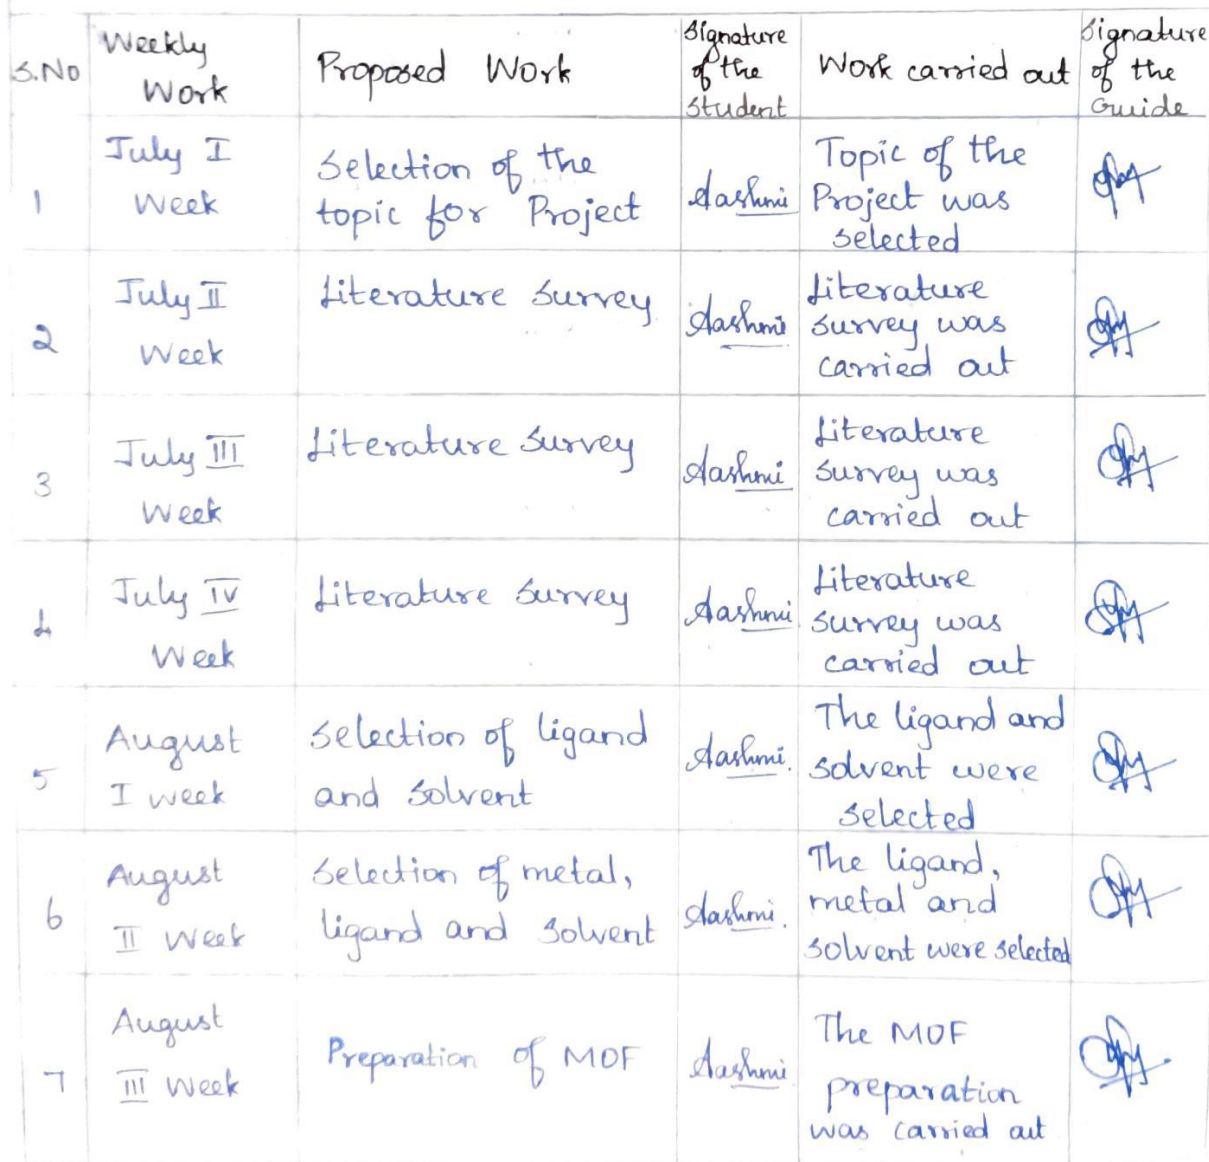 S.No
Weekly
Work
Proposed Work
Signature
of the
Student
Work carried out
Signature
of the
Guide
1
July I
Week
Selection of the
topic for Project
Aashmi
Topic of the
Project was
selected
2
July II
Week
Literature Survey
Aashmi
Literature
survey was
carried out
3
July III
Week
Literature Survey
Aashmi
Literature
survey was
carried out
4
July IV
Week
Literature Survey
Aashmi
Literature
survey was
carried out
5
August
I week
Selection of ligand
and Solvent
Aashmi.
The ligand and
solvent were
selected
6
August
II Week
Selection of metal,
ligand and Solvent
Aashmi.
The ligand,
metal and
solvent were selected
7
August
III Week
Preparation of MOF
Aashmi
The MOF
preparation
was carried out